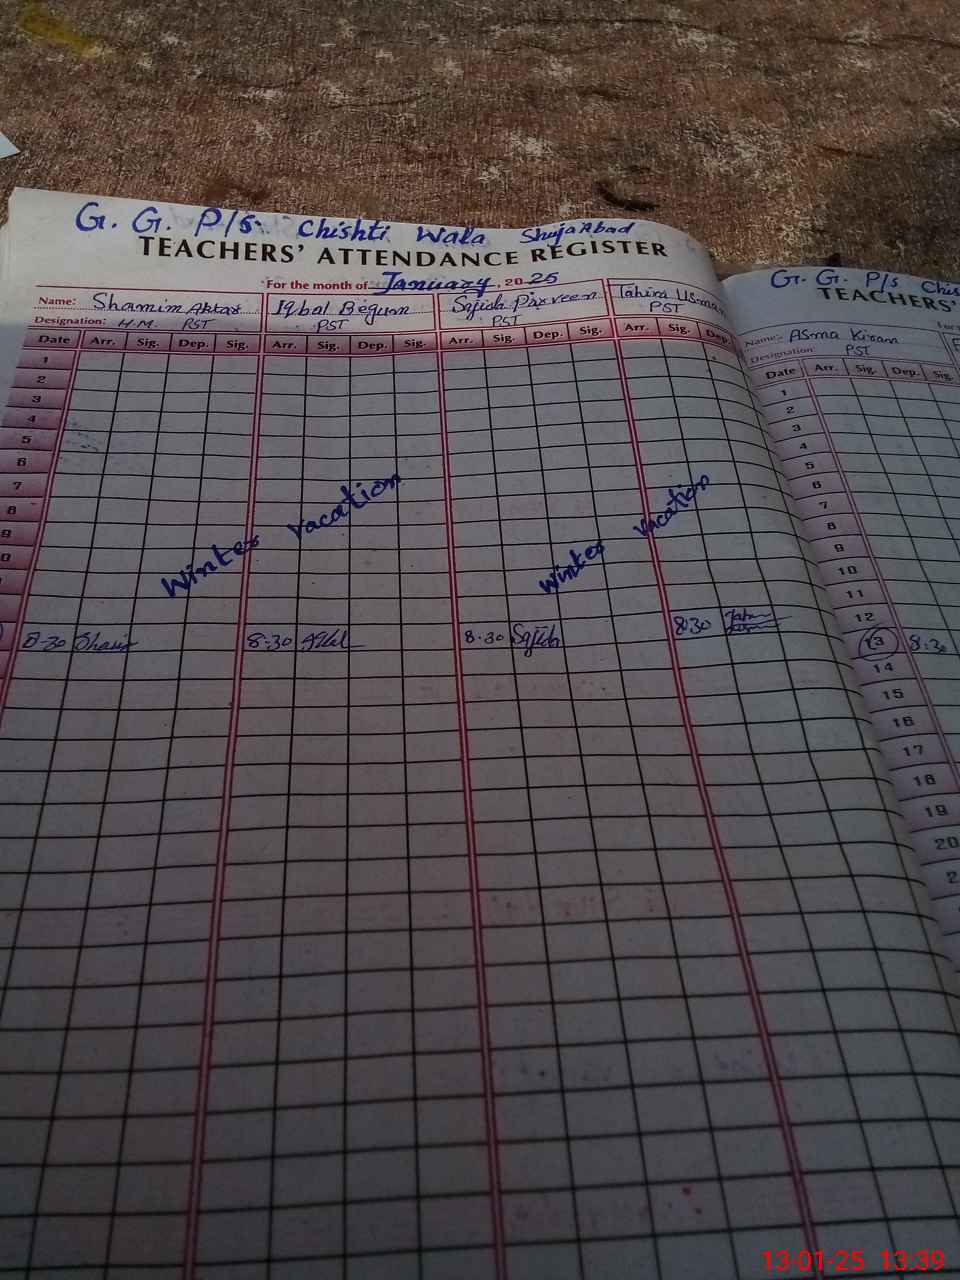 G. G. P/s. Chishti Wala ShujaAbad
TEACHERS' ATTENDANCE REGISTER
For the month of January, 2025
Name: Shamim Akhtar Iqbal Begum Sajida Parveen Tahira Usman
Designation: H.M. PST PST PST PST
Date Arr. Sig. Dep. Sig. Arr. Sig. Dep. Sig. Arr. Sig. Dep. Sig. Arr. Sig. Dep.
1
2
3
4
5
6
7
8
9
0
Winter vacation Winter vacation
8-30 8:30 8.30 8:30
G. G. P/s Chis
TEACHERS'
Name: Asma Kiran
Designation: PST
Date Arr. Sig. Dep. Sig.
1
2
3
4
5
6
7
8
9
10
11
12
13 8:30
14
15
16
17
18
19
20
2
13-01-25 13:39